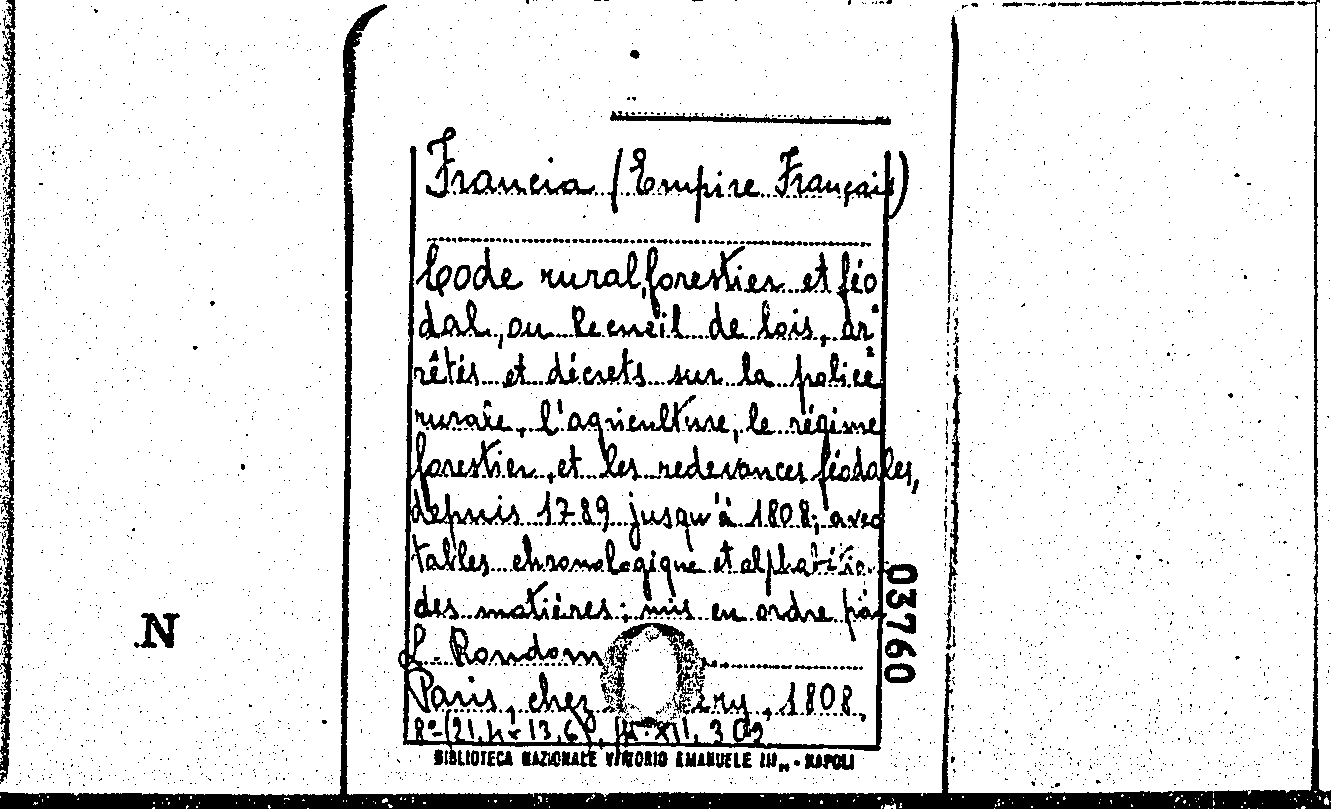 Francia (Empire Français)
Code rural, forestier et féo
dal, ou Recueil de lois, ar
rêtés et décrets sur la police
rurale, l'agriculture, le régime
forestier, et les redevances féodales,
depuis 1789 jusqu'à 1808; avec
tables chronologique et
des matières; mis en ordre par
L. Rondon
Paris, chez 1808.
8° (21,4 × 13,6) XII, 302
BIBLIOTECA NAZIONALE VITTORIO EMANUELE III - NAPOLI
03760
N